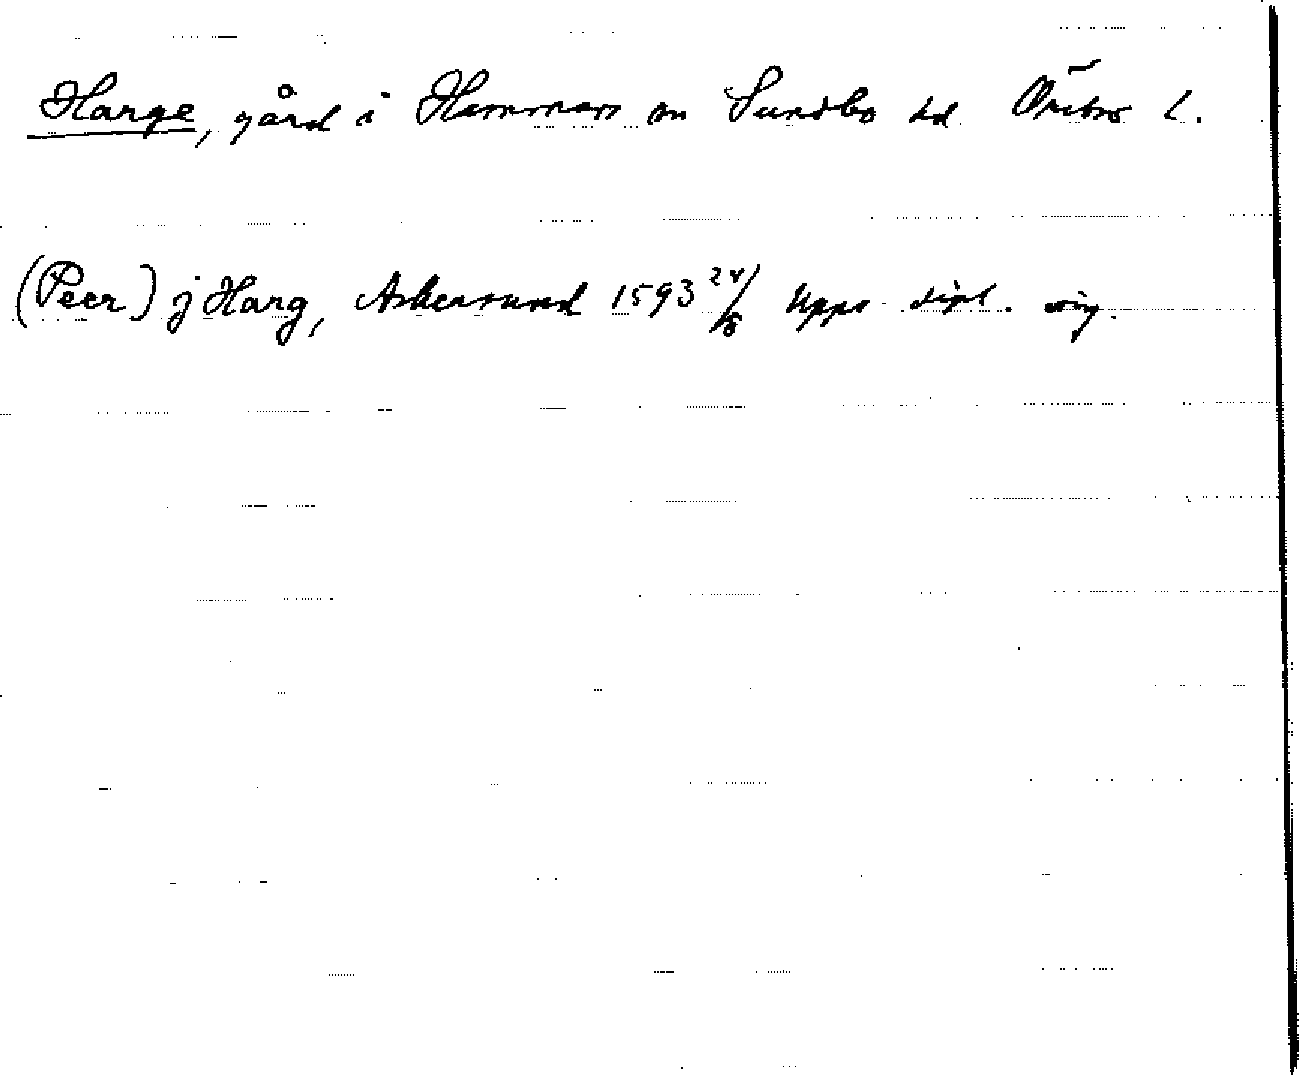 Harge, gård i Hammars sn Sundbo hd Örebro l.
(Peer) j Harg, Askersund 1593 24/8 Upps dipl. orig.